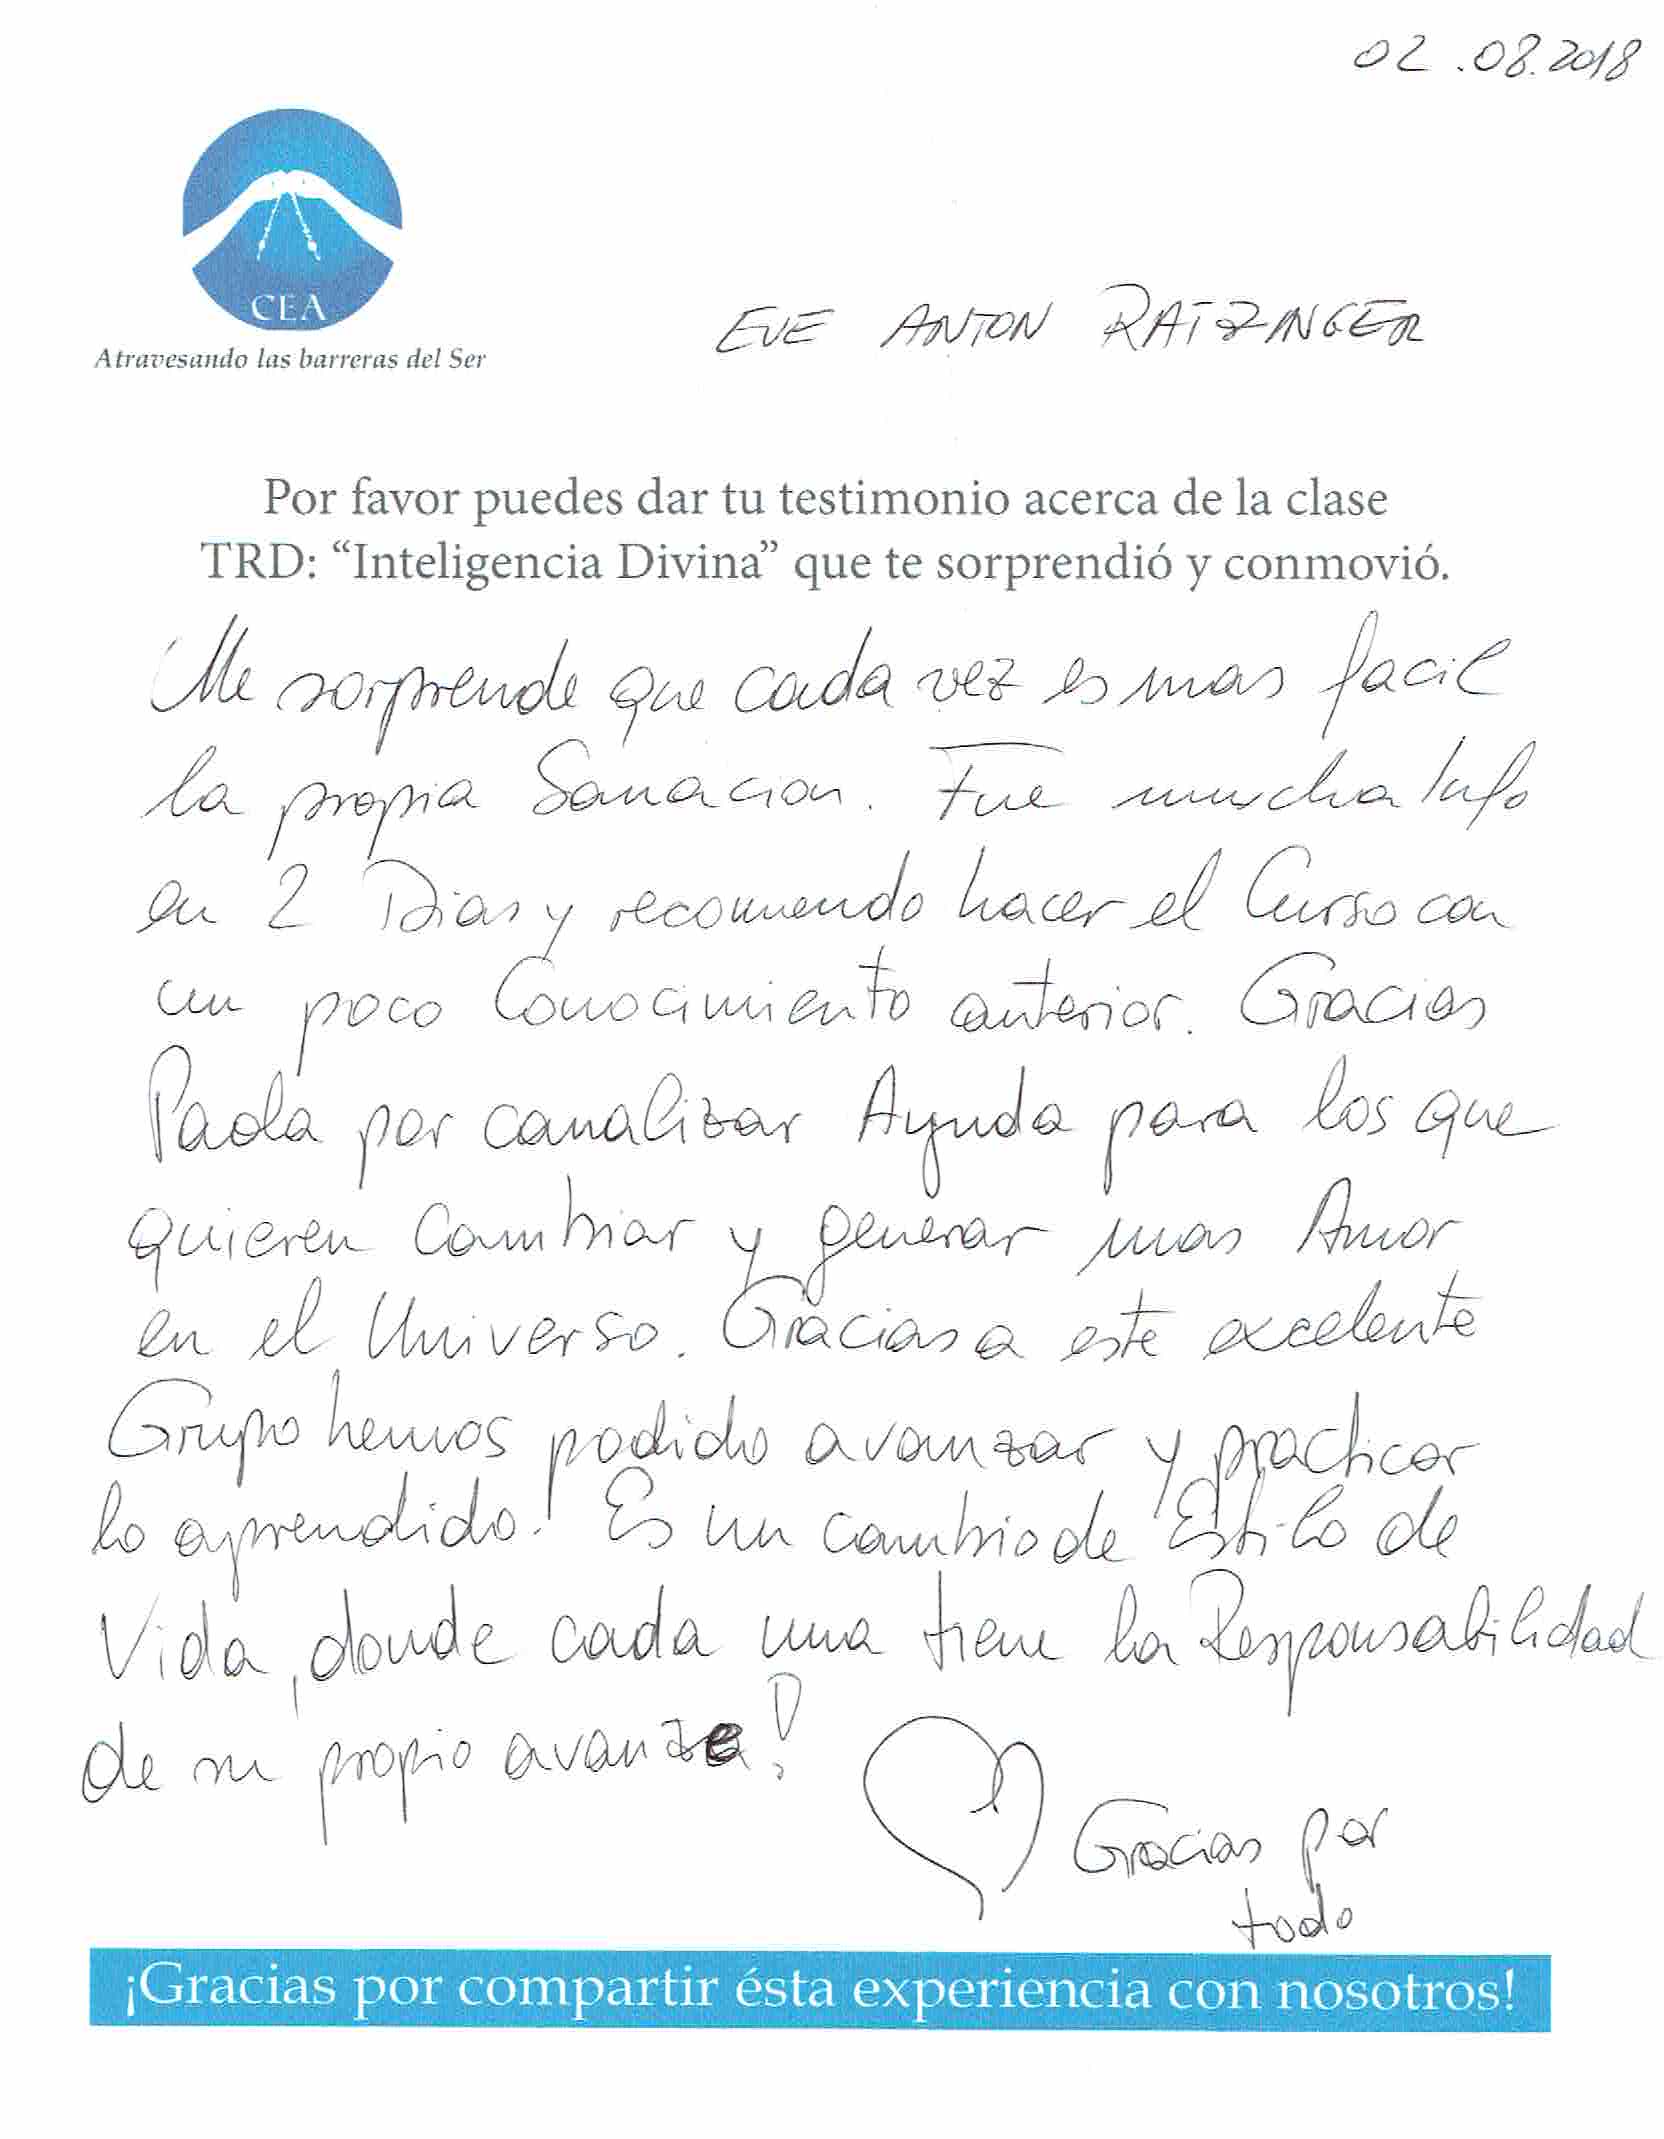 02.08.2018
CEA
Atravesando las barreras del Ser
EVE ANTON RATZINGER
Por favor puedes dar tu testimonio acerca de la clase
TRD: “Inteligencia Divina” que te sorprendió y conmovió.
Me sorprende que cada vez es mas facil
la propia Sanacion. Fue mucha Info
en 2 Dias y recomiendo hacer el Curso con
un poco Conocimiento anterior. Gracias
Paola por canalizar Ayuda para los que
quieren Cambiar y generar mas Amor
en el Universo. Gracias a este excelente
Grupo hemos podido avanzar y practicar
lo aprendido! Es un cambio de Estilo de
Vida, donde cada una tiene la Responsabilidad
de su propio avanze!
Gracias por
todo
¡Gracias por compartir ésta experiencia con nosotros!